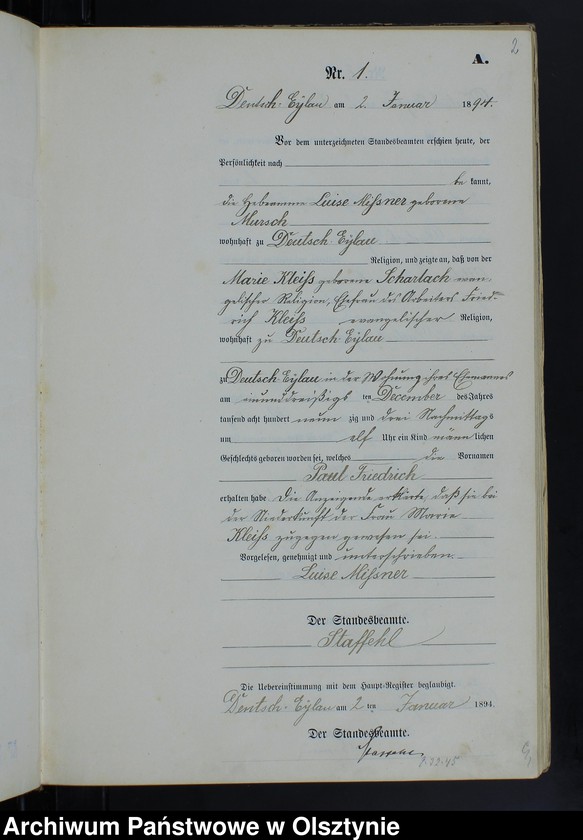 2
A.
Nr. 1.
Deutsch-Eylau am 2. Januar 1894.
Vor dem unterzeichneten Standesbeamten erschien heute, der
Persönlichkeit nach
be kannt,
die Hebeamme Luise Mißner geborene
Mursch
wohnhaft zu Deutsch-Eylau
Religion, und zeigte an, daß von der
Marie Kleiss geborene Scharlach evan-
gelischer Religion, Ehefrau des Arbeiters Fried-
rich Kleiss, evangelischer Religion,
wohnhaft zu Deutsch-Eylau
zu Deutsch-Eylau in der Wohnung ihres Ehemannes
am neununddreißigs ten December des Jahres
tausend acht hundert neun zig und drei Nachmittags
um elf Uhr ein Kind männ lichen
Geschlechts geboren worden sei, welches die Vornamen
Paul Friedrich
erhalten habe. Die Anzeigende erklärte, daß sie bei
der Niederkunft der Frau Marie
Kleiss zugegen gewesen sei.
Vorgelesen, genehmigt und unterschrieben.
Luise Mißner
Der Standesbeamte.
Staffehl
Die Uebereinstimmung mit dem Haupt-Register beglaubigt.
Deutsch-Eylau am 2 ten Januar 1894.
Der Standesbeamte.
Staffehl
Archiwum Państwowe w Olsztynie